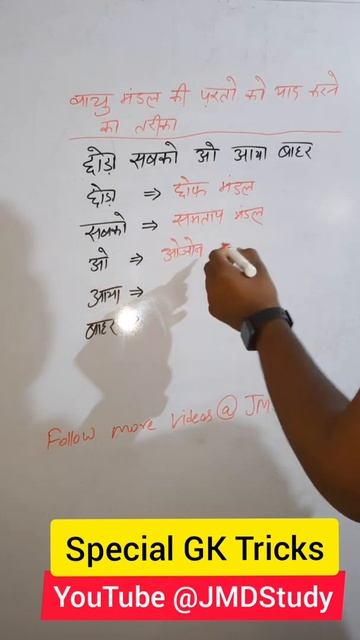 वायु मंडल की परतो को याद करने
का तरीका
छोड़ो सबको ओ आया बाहर
छोड़ो ⇒ छोभ मंडल
सबको ⇒ समताप मंडल
ओ ⇒ ओजोन
आया ⇒
बाहर
Follow more videos @ JM
Special GK Tricks
YouTube @JMDStudy